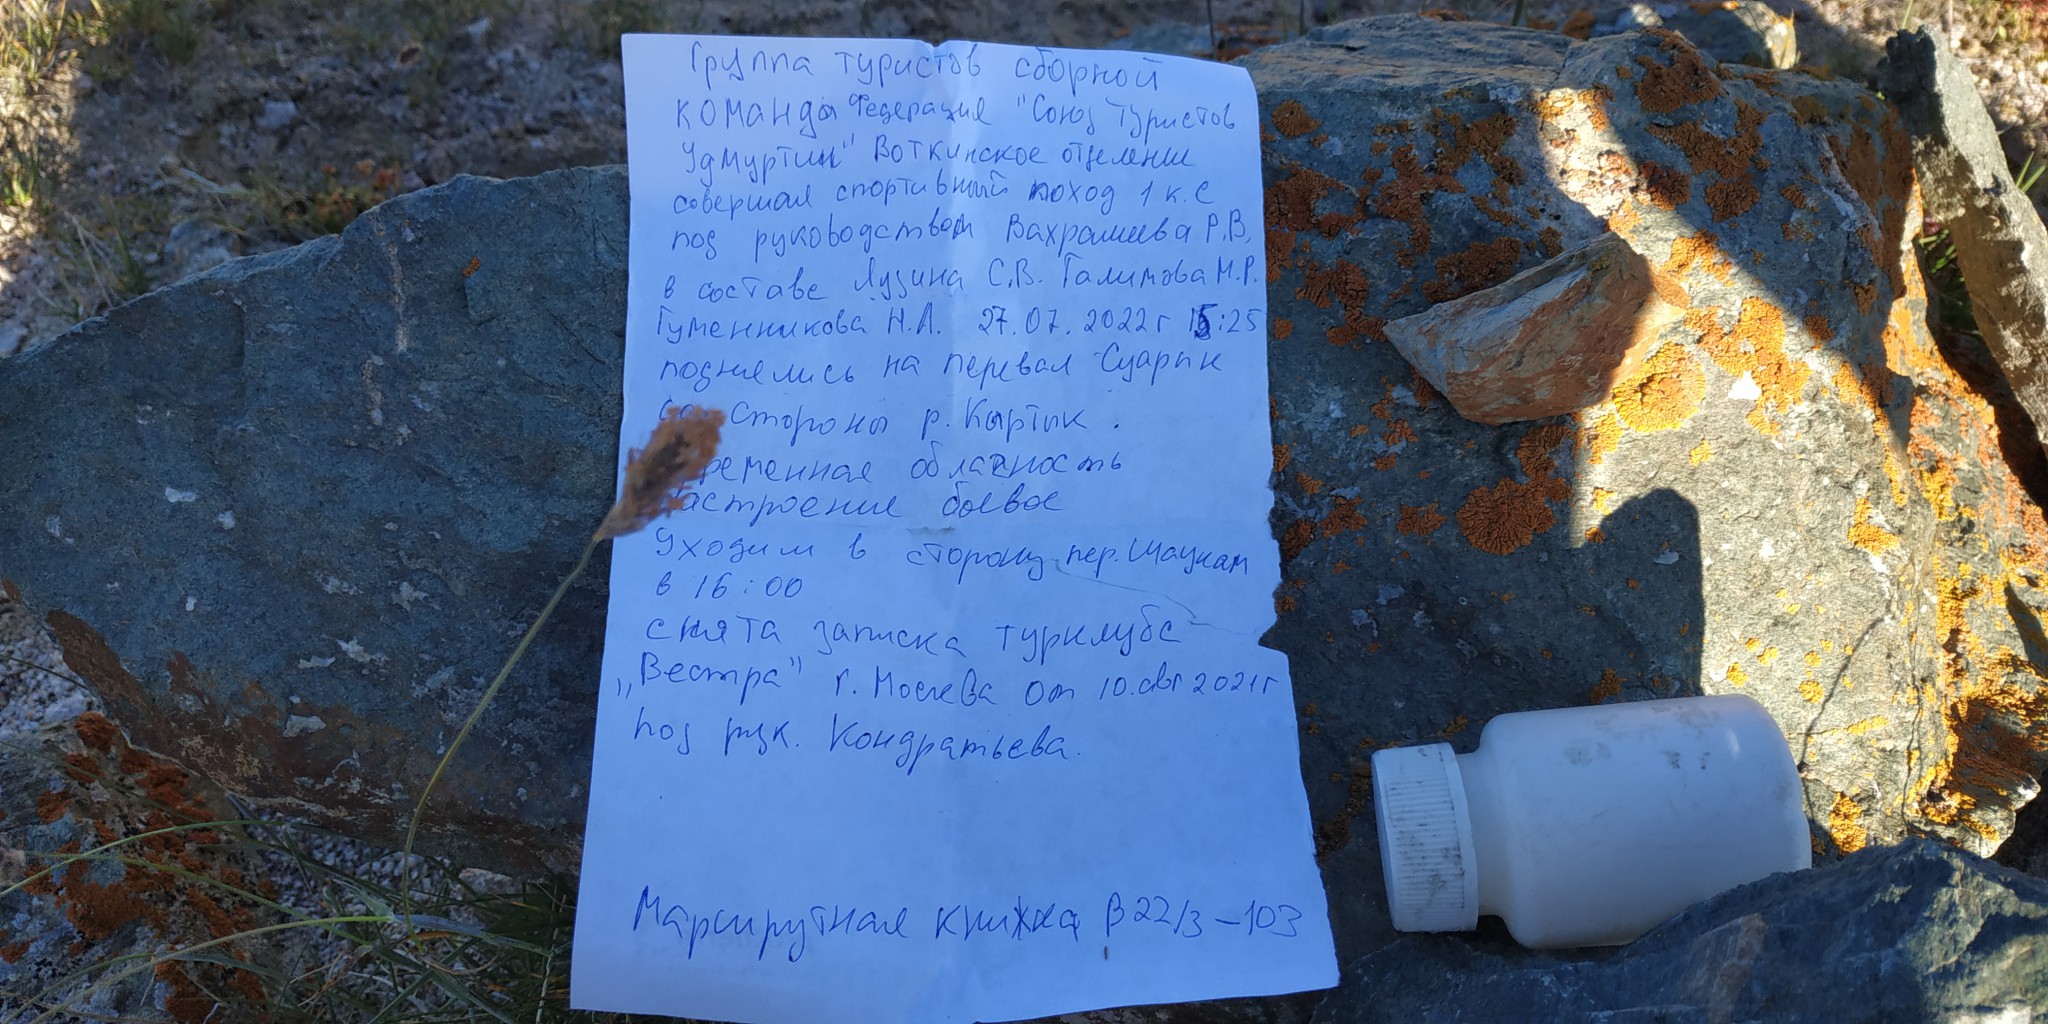 Группа туристов сборной
команды Федерация "Союз Туристов
Удмуртии" Воткинское отделение
совершая спортивный поход 1 к.с
под руководством Вахрамеева Р.В.
в составе Лузина С.В. Галимова М.Р.
Гуменникова Н.А. 27.07.2022г 15:25
поднялись на перевал Суарык
со стороны р. Кыртык.
ременная облачность
астроение боевое
Уходим в сторону пер. Шаукам
в 16:00
снята записка турклуба
"Вестра" г. Москва от 10.авг 2021г
под рук. Кондратьева.
Маршрутная книжка В22/3-103